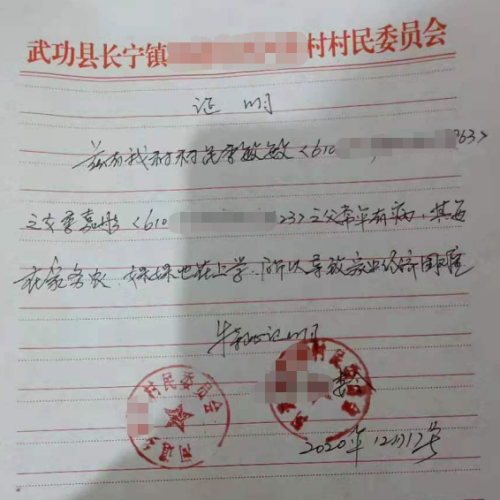 武功县长宁镇 村村民委员会
证明
兹有我村村民李敏敏<610 363>
之父李嘉彤<610 23>之父常年有病,其母
在家务农,妹妹也在上学,所以导致家里经济困难
特此证明
村民委员会
村民委员会
2020年12月12号